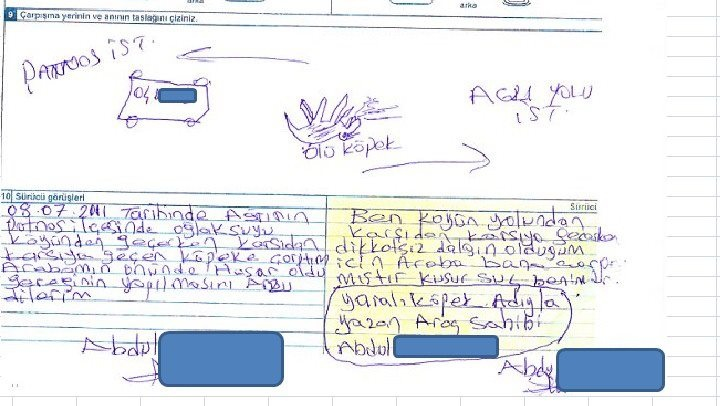 arka
arka
9 Çarpışma yerinin ve anının taslağını çiziniz.
PATNOS İST.
AGRI YOLU
İST.
04
ölü köpek
10 Sürücü görüşleri
08.07.2011 Tarihinde Agrının
Patnos ilçesinde oglaksuyu
köyünden geçerken karşıdan
karşıya geçen köpeke çarptım
Arabamın önünde Hasar oldu
gereginin yapılmasını Arzu
dilerim
Abdul
Sürücü
Ben köyün yolundan
karşıdan karşıya geçerken
dikkatsiz dalgın oldugum
için Araba bana çarpı
mıştır kusur suç benimdir.
yaralı köpek Adıyla
yazan Araç Sahibi
Abdul
Abdu